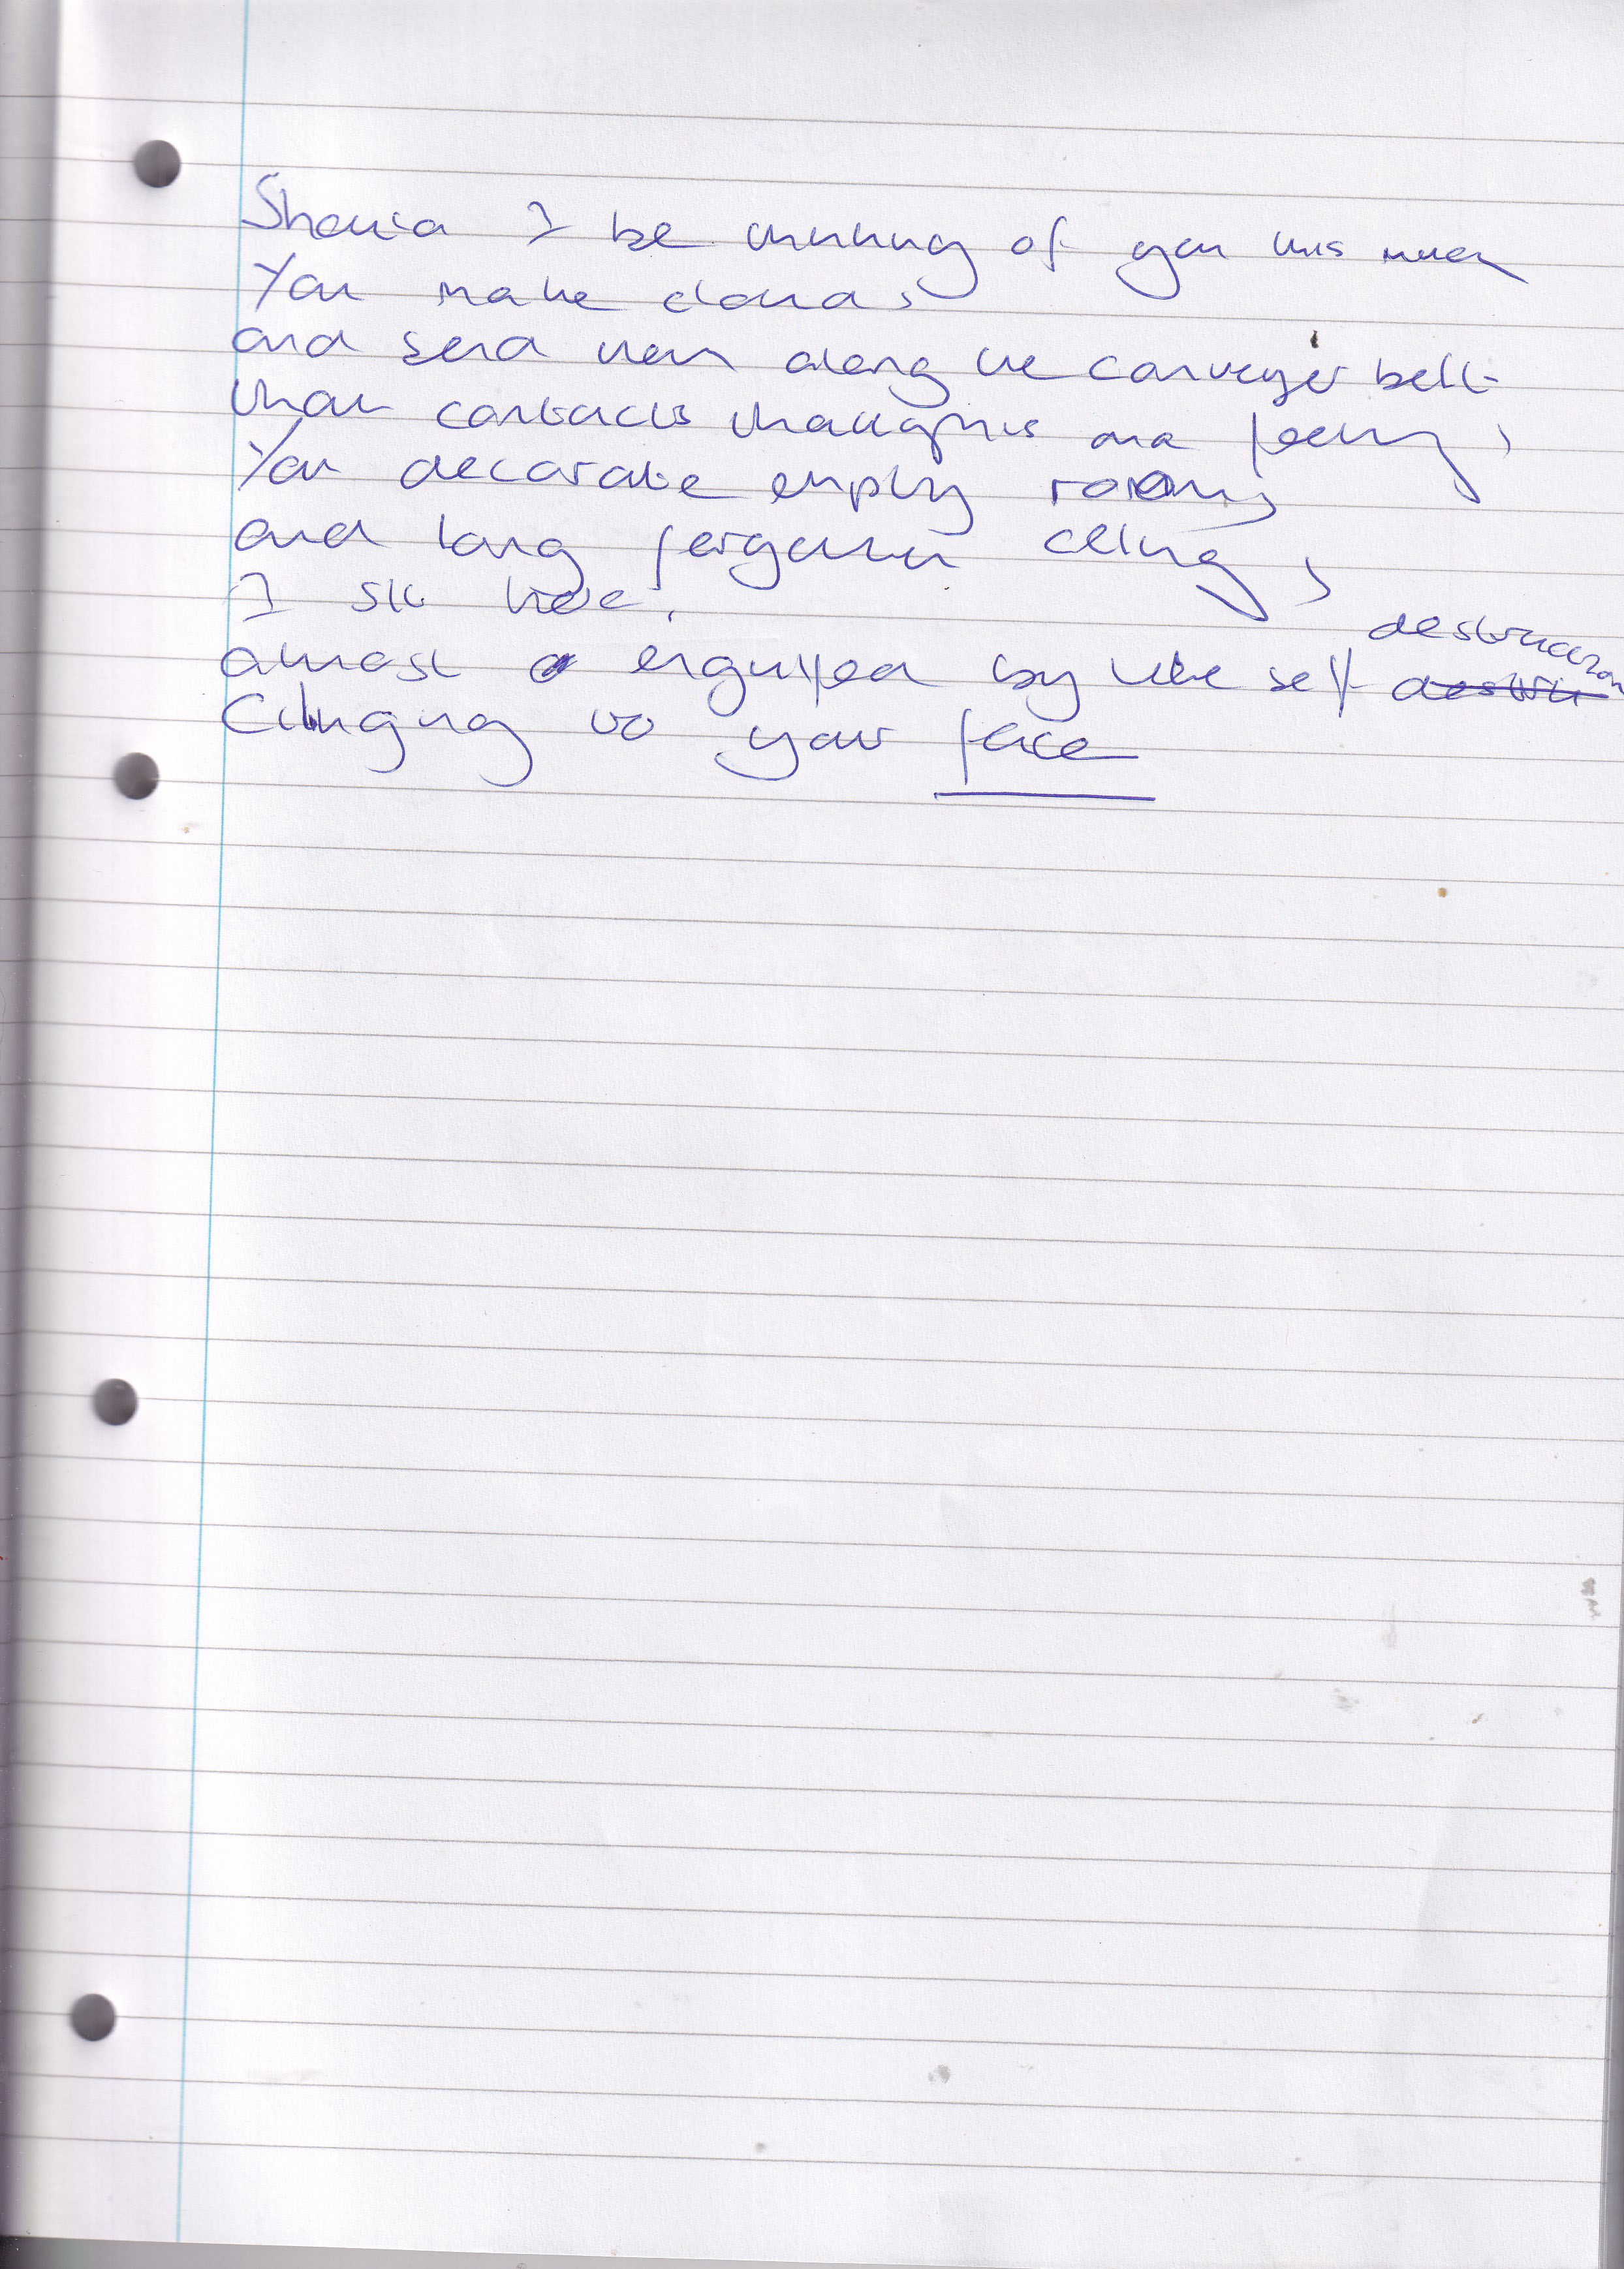 Should I be thinking of you this much
You make clouds
and send them along the conveyer belt
that contacts thoughts and feelings
You decorate empty rooms
and long forgotten ceilings
I sit here,
almost engulfed by the self destruction
Clinging to your face